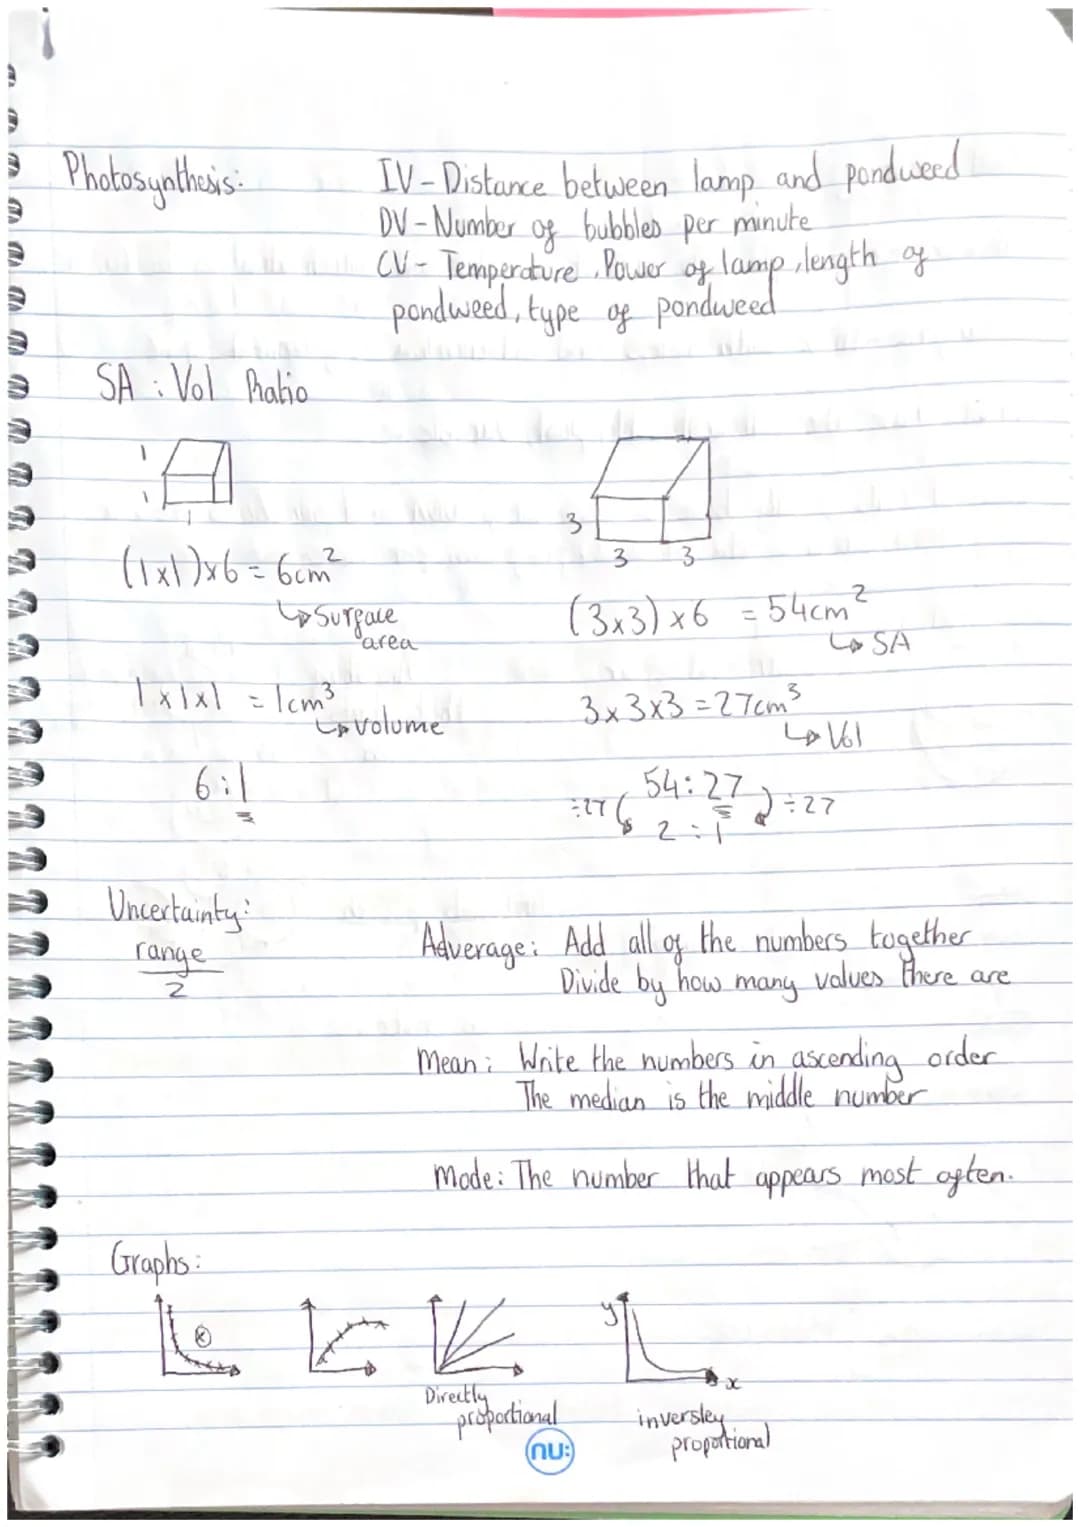 Photosynthesis:
IV - Distance between lamp and pondweed
DV - Number of bubbles per minute
CV - Temperature, Power of lamp, length of
pondweed, type of pondweed
SA : Vol Ratio
1
1
1
3
3 3
(1x1)x6 = 6cm²
↳ Surface
area
(3x3) x 6 = 54cm²
↳ SA
1x1x1 = 1cm³
↳ volume
3x3x3 = 27cm³
↳ Vol
6:1
÷27 ( 54:27 ) ÷27
2 : 1
Uncertainty:
range
2
Adverage: Add all of the numbers together
Divide by how many values there are
Mean: Write the numbers in ascending order
The median is the middle number
Mode: The number that appears most often.
Graphs:
y
x
Directly
proportional
inversley
proportional
nu: